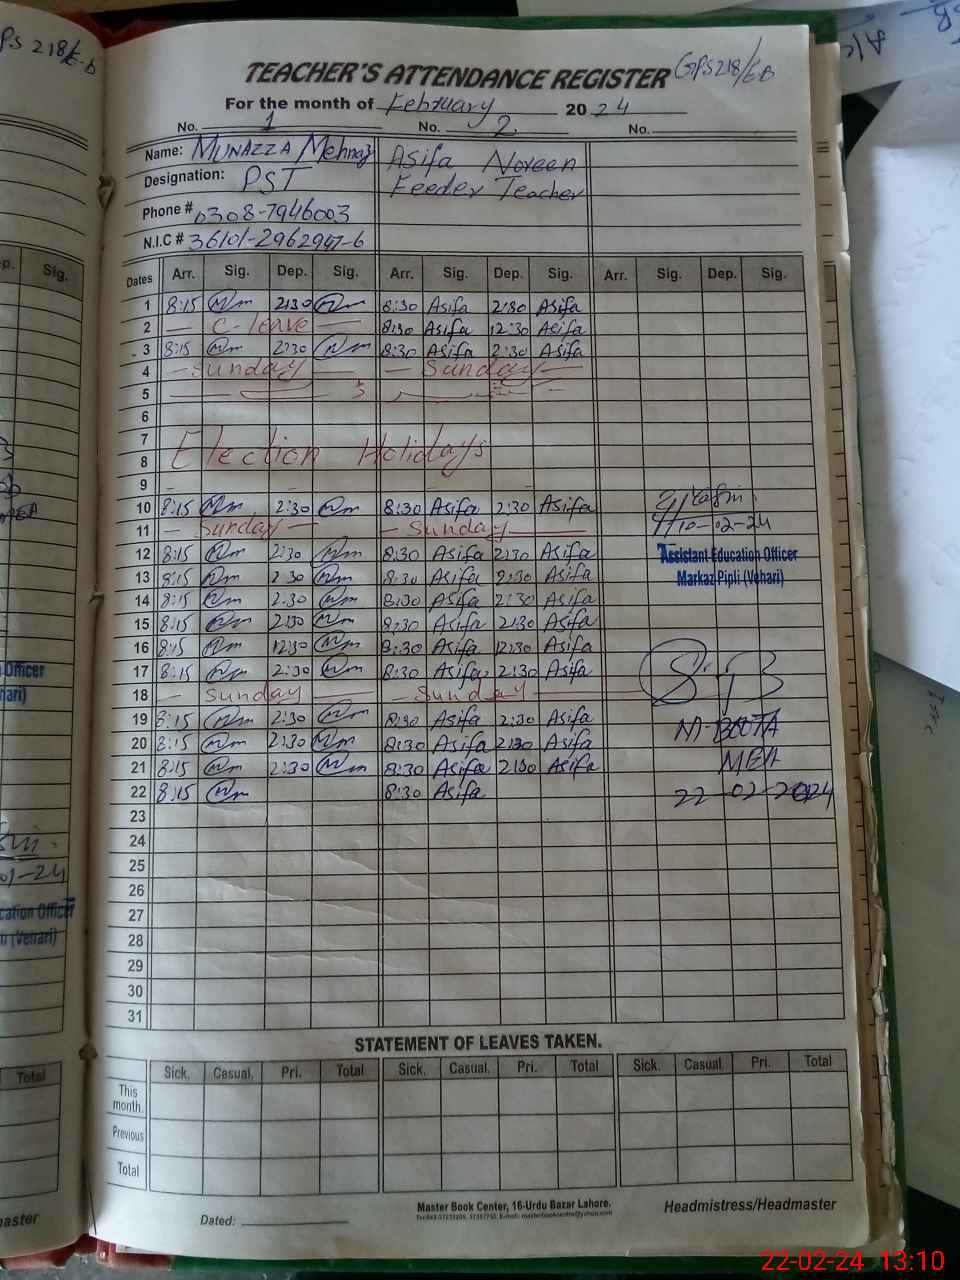 PS 218/E.B
TEACHER'S ATTENDANCE REGISTER GPS 218/EB
For the month of February 2024
No. 1 No. 2 No.
Name: MUNAZZA Mehnaz Asifa Noreen
Designation: PST Feeder Teacher
Phone # 0308-7946003
N.I.C # 36101-2962947-6
Dates Arr. Sig. Dep. Sig. Arr. Sig. Dep. Sig. Arr. Sig. Dep. Sig.
1 8:15 2:30 8:30 Asifa 2:30 Asifa
2 — C-leave — 8:30 Asifa 12:30 Asifa
3 8:15 2:30 8:30 Asifa 2:30 Asifa
4 — Sunday — — Sunday —
5
6
7
8 Election Holidays
9
10 8:15 2:30 8:30 Asifa 2:30 Asifa
10-02-24
11 — Sunday — — Sunday —
12 8:15 2:30 8:30 Asifa 2:30 Asifa
Assistant Education Officer
13 8:15 2:30 8:30 Asifa 2:30 Asifa
Markaz Pipli (Vehari)
14 8:15 2:30 8:30 Asifa 2:30 Asifa
15 8:15 2:30 8:30 Asifa 2:30 Asifa
16 8:15 12:30 8:30 Asifa 12:30 Asifa
17 8:15 2:30 8:30 Asifa 2:30 Asifa
18 — Sunday — — Sunday —
19 8:15 2:30 8:30 Asifa 2:30 Asifa
M-BOOTA
20 8:15 2:30 8:30 Asifa 2:30 Asifa
21 8:15 2:30 8:30 Asifa 2:30 Asifa
MEA
22 8:15 8:30 Asifa
22-02-2024
23
24
25
26
27
28
29
30
31
STATEMENT OF LEAVES TAKEN.
Sick. Casual. Pri. Total Sick. Casual. Pri. Total Sick. Casual. Pri. Total
This month.
Previous
Total
Master Book Center, 16-Urdu Bazar Lahore.
Dated: Headmistress/Headmaster
ep. Sig.
Officer
hari)
01-24
cation Officer
li (Vehari)
Total
master
22-02-24 13:10